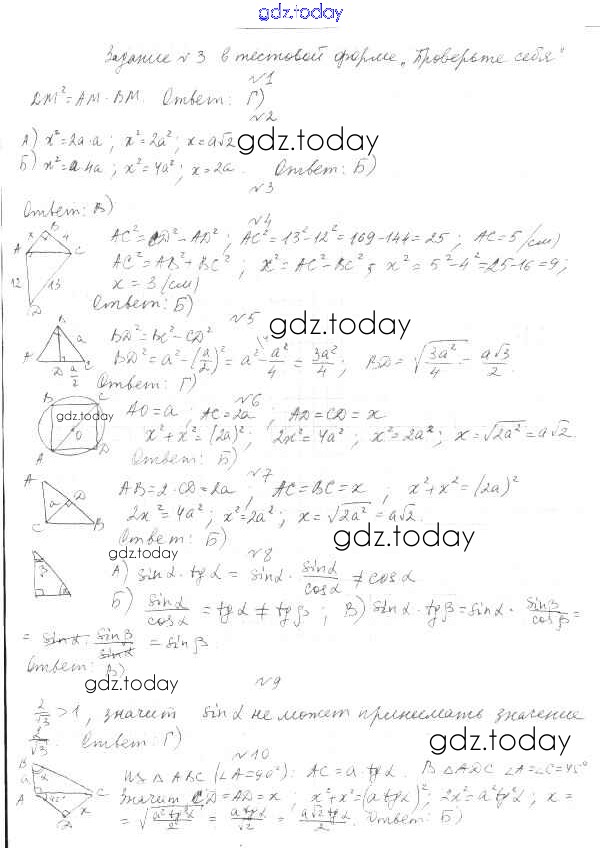 gdz.today
Задание №3 в тестовой форме „Проверьте себя"
№1
DM² = AM · BM. Ответ: Г)
№2
А) x² = 2a · a; x² = 2a²; x = a√2 gdz.today
Б) x² = a · 4a; x² = 4a²; x = 2a. Ответ: Б)
№3
Ответ: В)
№4
AC² = CD² − AD²; AC² = 13² − 12² = 169 − 144 = 25; AC = 5 (см)
AC² = AB² + BC²; x² = AC² − BC²; x² = 5² − 4² = 25 − 16 = 9;
x = 3 (см)
Ответ: Б)
B x 4 A C 12 13 D
№5 gdz.today
BD² = BC² − CD²
BD² = a² − (a/2)² = a² − a²/4 = 3a²/4; BD = √(3a²/4) = a√3/2.
Ответ: Г)
B a A D a/2 C
№6
AO = a; AC = 2a; AD = CD = x
x² + x² = (2a)²; 2x² = 4a²; x² = 2a²; x = √2a² = a√2.
Ответ: Б)
B C gdz.today O A D
№7
AB = 2 · CD = 2a; AC = BC = x; x² + x² = (2a)²
2x² = 4a²; x² = 2a²; x = √2a² = a√2.
Ответ: Б) gdz.today
A D a C B
gdz.today №8
А) sinα · tgα = sinα · sinα/cosα ≠ cosα
Б) sinα/cosα = tgα ≠ tgβ; В) sinα · tgβ = sinα · sinβ/cosβ =
= sinα · sinβ/sinα = sinβ
Ответ: В)
β α
gdz.today №9
2/√3 > 1, значит sinα не может принимать значение
2/√3. Ответ: Г) gdz.today
№10
Из △ABC (∠A = 90°): AC = a · tgα. В △ADC ∠A = ∠C = 45°
Значит CD = AD = x; x² + x² = (a tgα)²; 2x² = a² tg²α; x =
= √(a² tg²α/2) = a tgα/√2 = a√2 tgα/2. Ответ: Б)
B a α A 45° C x D